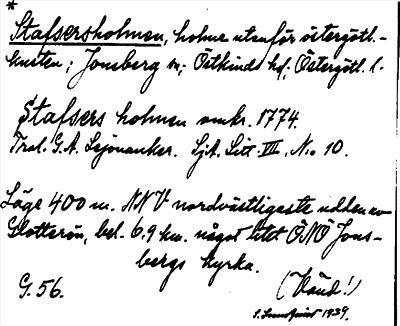 *
Stafsersholmen, holme utanför östergötl.-
kusten; Jonsberg sn; Östkinds hd; Östergötl. l.
Stafsers holmen omkr. 1774.
Tral. G. A. Lejonanker. SjA. Litt. VII. No 10.
Läge 400 m. NNV nordvästligaste udden av
Slotterön, bel. 6,9 km. något litet ÖNÖ Jons-
bergs kyrka.
G. 56. (Känd!)
1939.